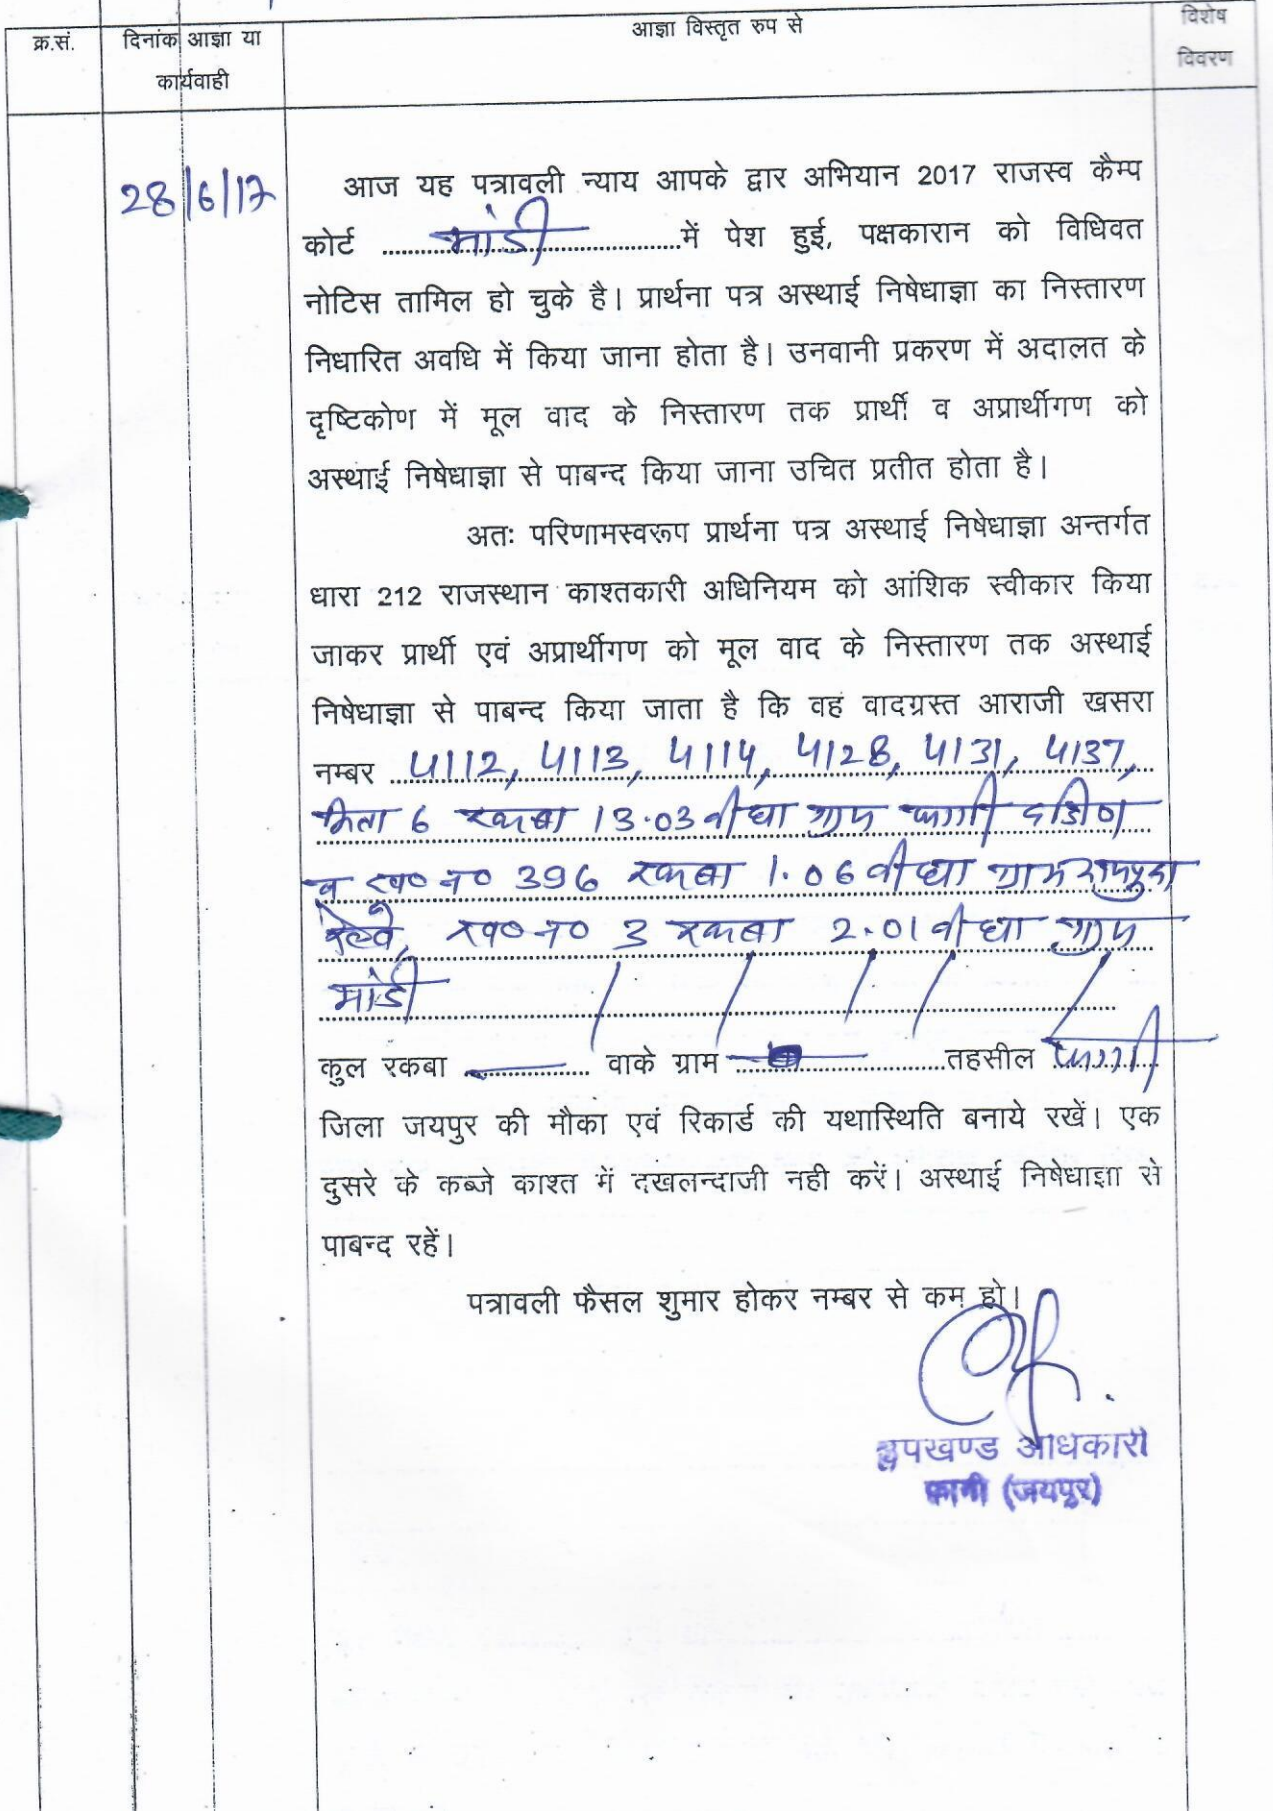 क्र.सं. दिनांक आज्ञा या कार्यवाही आज्ञा विस्तृत रुप से विशेष विवरण
28/6/17
आज यह पत्रावली न्याय आपके द्वार अभियान 2017 राजस्व कैम्प
कोर्ट मांडी में पेश हुई, पक्षकारान को विधिवत
नोटिस तामिल हो चुके है। प्रार्थना पत्र अस्थाई निषेधाज्ञा का निस्तारण
निधारित अवधि में किया जाना होता है। उनवानी प्रकरण में अदालत के
दृष्टिकोण में मूल वाद के निस्तारण तक प्रार्थी व अप्रार्थीगण को
अस्थाई निषेधाज्ञा से पाबन्द किया जाना उचित प्रतीत होता है।
अतः परिणामस्वरूप प्रार्थना पत्र अस्थाई निषेधाज्ञा अन्तर्गत
धारा 212 राजस्थान काश्तकारी अधिनियम को आंशिक स्वीकार किया
जाकर प्रार्थी एवं अप्रार्थीगण को मूल वाद के निस्तारण तक अस्थाई
निषेधाज्ञा से पाबन्द किया जाता है कि वह वादग्रस्त आराजी खसरा
नम्बर 4112, 4113, 4114, 4128, 4131, 4137,
किता 6 रकबा 13.03 बीघा ग्राम फागी दक्षिण
व ख० न० 396 रकबा 1.06 बीघा ग्राम
रेल्वे, ख० न० 3 रकबा 2.01 बीघा ग्राम
मांडी
कुल रकबा वाके ग्राम तहसील फागी
जिला जयपुर की मौका एवं रिकार्ड की यथास्थिति बनाये रखें। एक
दुसरे के कब्जे काश्त में दखलन्दाजी नही करें। अस्थाई निषेधाज्ञा से
पाबन्द रहें।
पत्रावली फैसल शुमार होकर नम्बर से कम हो।
उपखण्ड अधिकारी
फागी (जयपुर)